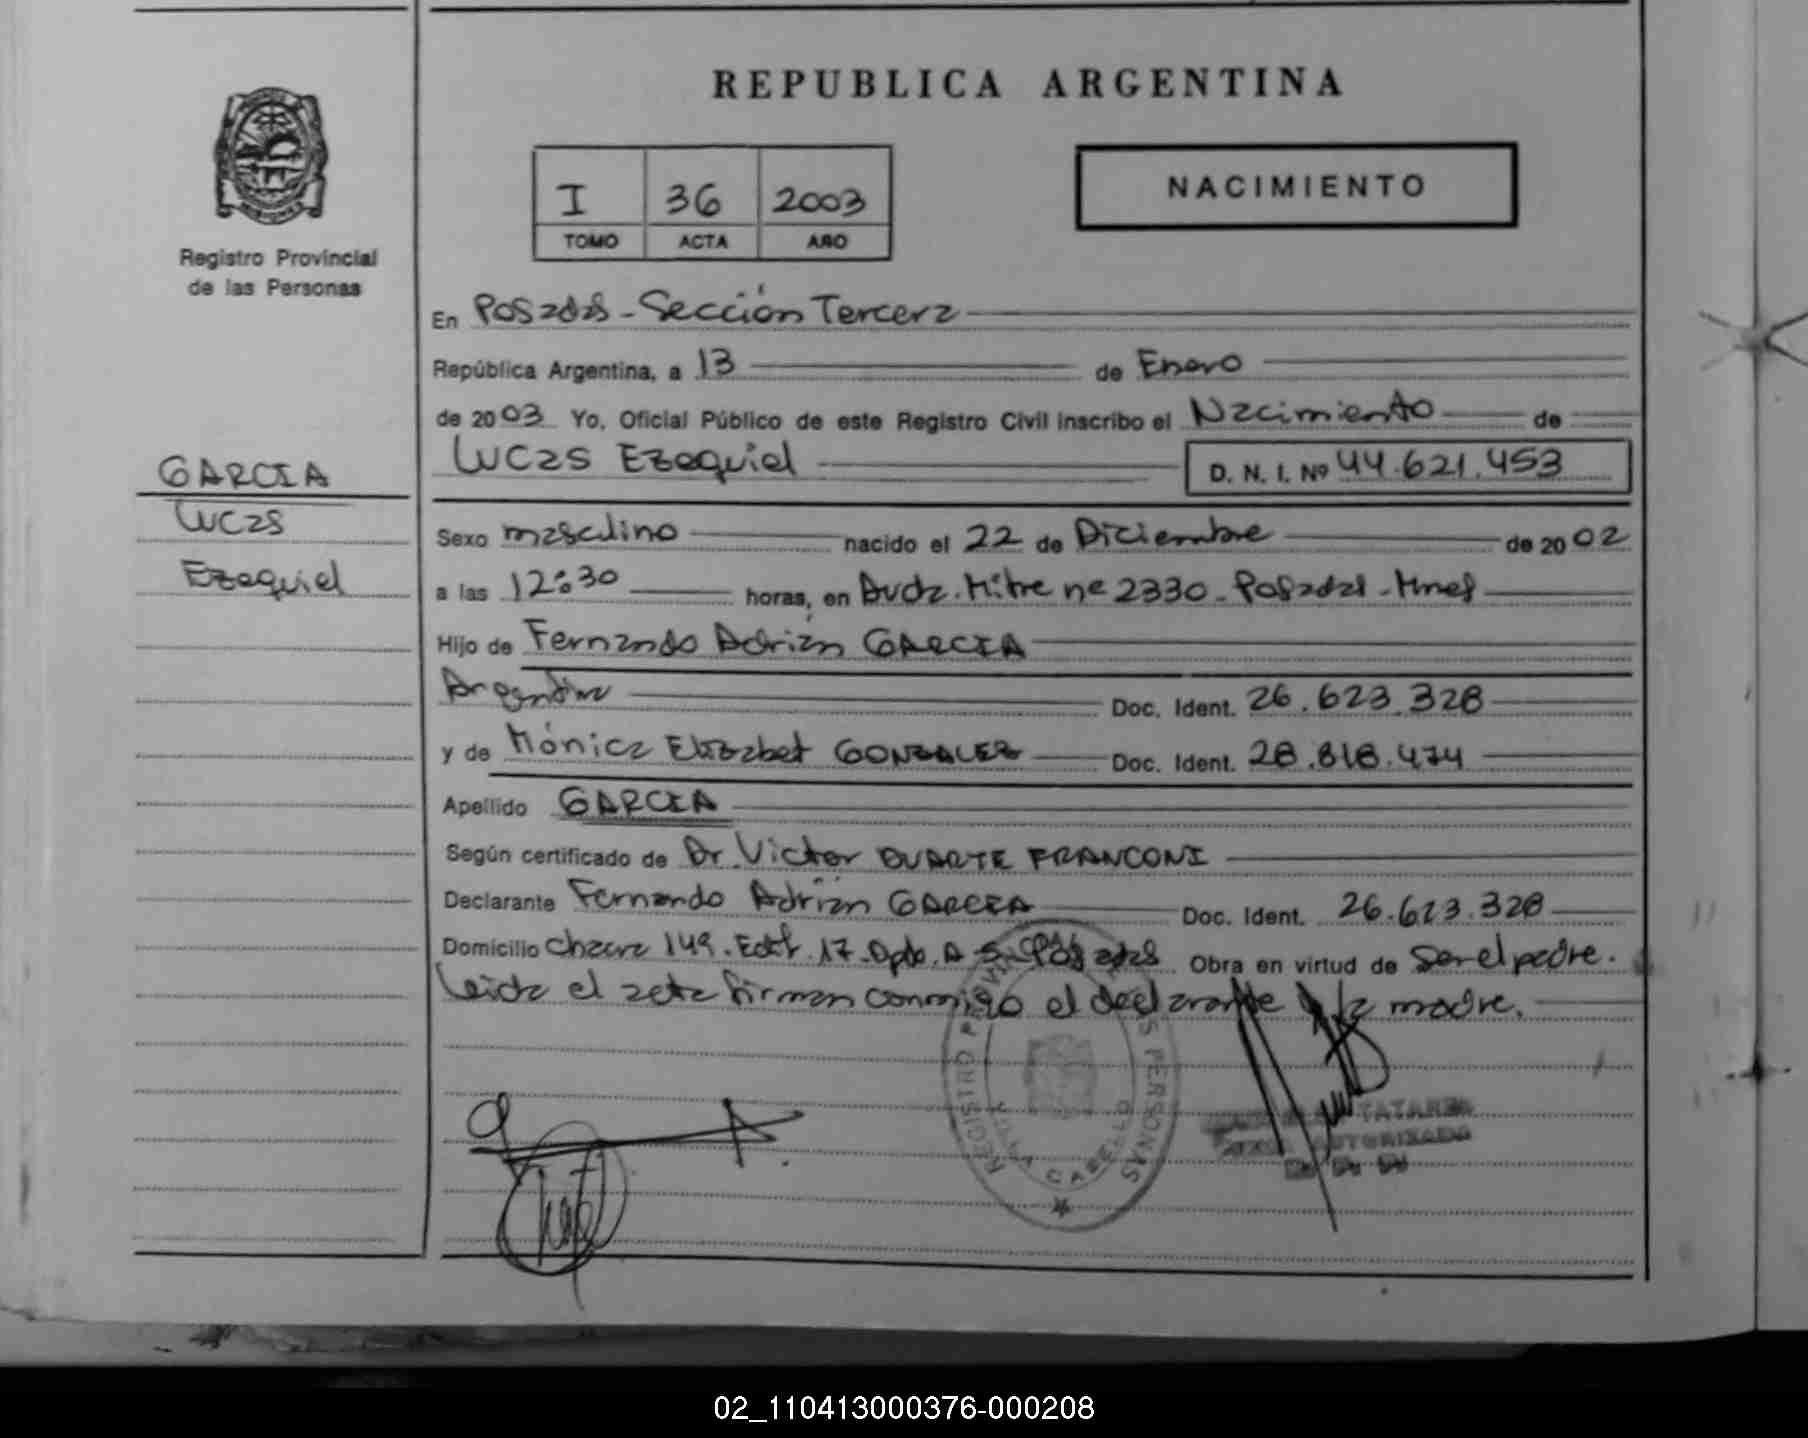 REPUBLICA ARGENTINA
I 36 2003
TOMO ACTA AÑO
NACIMIENTO
Registro Provincial
de las Personas
GARCIA
Lucas
Ezequiel
En Posadas - Sección Tercera
República Argentina, a 13 de Enero
de 2003 Yo, Oficial Público de este Registro Civil inscribo el Nacimiento de
Lucas Ezequiel D. N. I. Nº 44.621.453
Sexo masculino nacido el 22 de Diciembre de 2002
a las 12:30 horas, en Avda. Mitre nº 2330 - Posadas - Mnes
Hijo de Fernando Adrián GARCIA
Argentino Doc. Ident. 26.623.328
y de Mónica Elizabet GONZALEZ Doc. Ident. 28.818.474
Apellido GARCIA
Según certificado de Dr. Victor DUARTE FRANCONI
Declarante Fernando Adrián GARCIA Doc. Ident. 26.623.328
Domicilio Chacra 149. Edif. 17. Dpto. A Posadas Obra en virtud de Ser el padre.
Leida el acta firman conmigo el declarante y la madre.
REGISTRO PERSONAS
CABELLO
AUTORIZADO
02_110413000376-000208